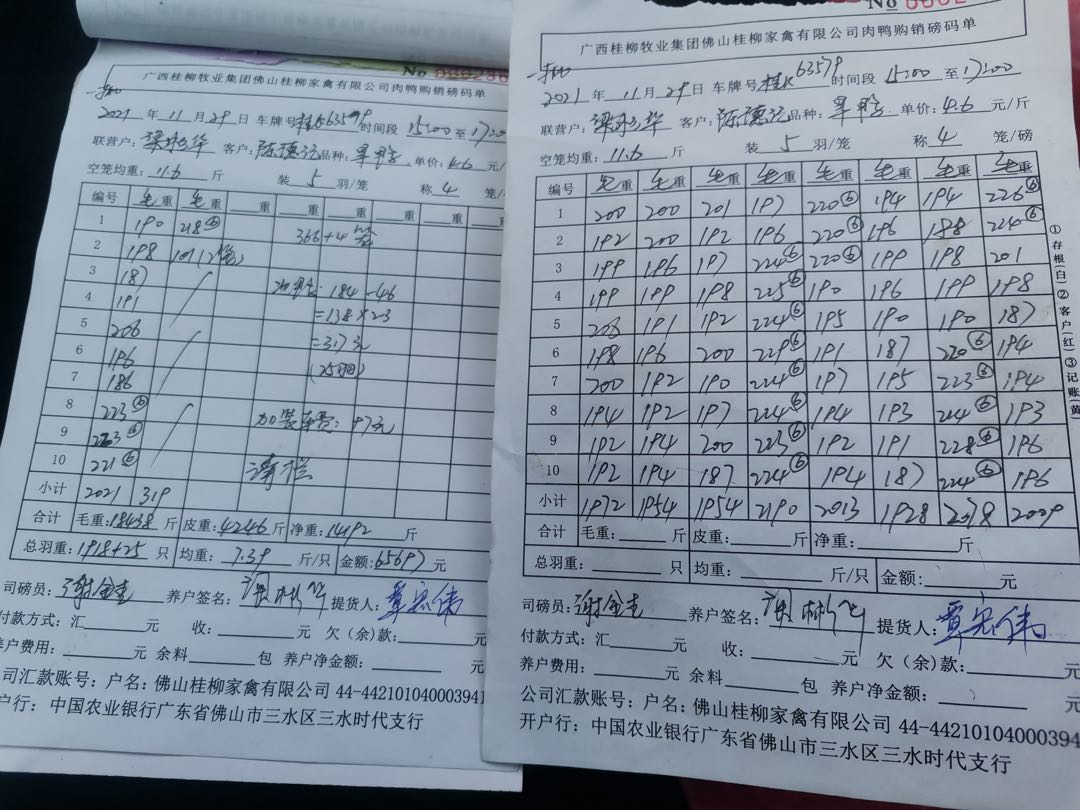 No
广西桂柳牧业集团佛山桂柳家禽有限公司肉鸭购销磅码单
2021 年 11 月 29 日 车牌号 桂K63579 时间段 15:00 至 17:00
联营户: 客户: 品种: 单价: 4.6 元/
空笼均重: 11.6 斤 装 5 羽/笼 称 4 笼/
编号 毛重 毛重 重 重 重 重 重 重
1 190 218⑥ 366+4
2 198 101(2笼)
3 187 184-46
4 191 =138×23
5 206 =317元
6 196 (25羽)
7 186
8 223⑥ 加装车费: 97元
9 223⑥
10 221⑥
小计 2021 319
合计 毛重: 18438 斤 皮重: 4246 斤 净重: 14192 斤
总羽重: 1918+25 只 均重: 7.39 斤/只 金额: 65697 元
司磅员: 谢金 养户签名: 提货人:
付款方式: 汇 元 收: 元 欠(余)款: 元
养户费用: 元 余料 包 养户净金额: 元
公司汇款账号: 户名: 佛山桂柳家禽有限公司 44-4421010400003941
开户行: 中国农业银行广东省佛山市三水区三水时代支行
No
广西桂柳牧业集团佛山桂柳家禽有限公司肉鸭购销磅码单
2021 年 11 月 29 日 车牌号 桂K63579 时间段 15:00 至 17:00
联营户: 客户: 品种: 单价: 4.6 元/斤
空笼均重: 11.6 斤 装 5 羽/笼 称 4 笼/磅
编号 毛重 毛重 毛重 毛重 毛重 毛重 毛重 毛重
1 200 200 201 197 220⑥ 194 194 226⑥
2 192 200 192 196 220⑥ 196 188 224⑥
3 199 196 197 224⑥ 220⑥ 199 198 201
4 199 199 198 225⑥ 190 196 199 198
5 206 191 192 224⑥ 195 190 190 187
6 198 196 200 229⑥ 191 187 220⑥ 194
7 200 192 190 224⑥ 197 195 223⑥ 194
8 194 192 197 224⑥ 194 193 214⑥ 193
9 192 194 200 223⑥ 192 191 228⑥ 196
10 192 194 187 224⑥ 194 187 224⑥ 196
小计 1972 1954 1954 2190 2013 1928 2078 2009
合计 毛重: 斤 皮重: 斤 净重: 斤
总羽重: 只 均重: 斤/只 金额: 元
司磅员: 谢金 养户签名: 提货人:
付款方式: 汇 元 收: 元 欠(余)款: 元
养户费用: 元 余料 包 养户净金额: 元
公司汇款账号: 户名: 佛山桂柳家禽有限公司 44-44210104000394
开户行: 中国农业银行广东省佛山市三水区三水时代支行
①存根(白)②客户(红)③记账(黄)